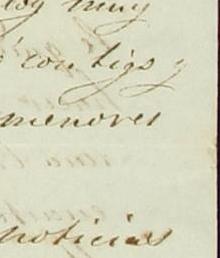 muy
contigo y
menores
noticias